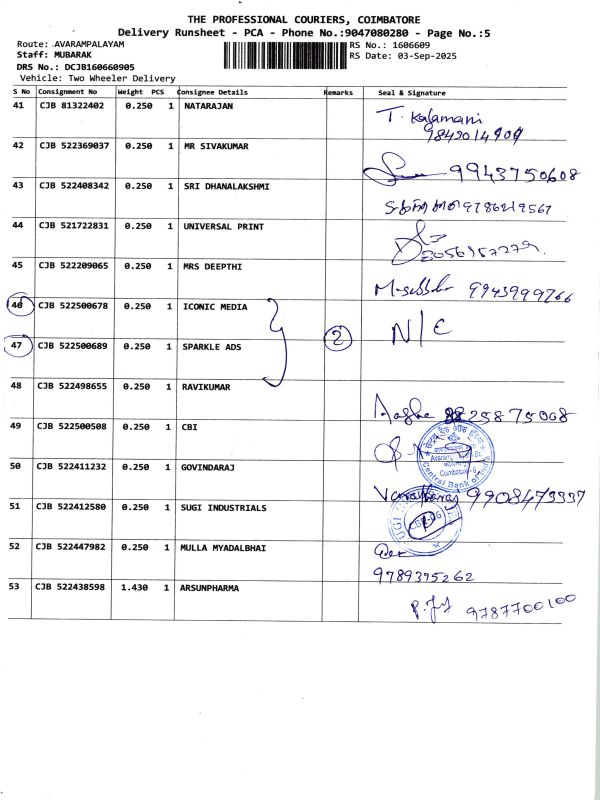 THE PROFESSIONAL COURIERS, COIMBATORE
Delivery Runsheet - PCA - Phone No.:9047080280 - Page No.:5
Route: AVARAMPALAYAM RS No.: 1606609
Staff: MUBARAK RS Date: 03-Sep-2025
DRS No.: DCJB160660905
Vehicle: Two Wheeler Delivery
S No Consignment No Weight PCS Consignee Details Remarks Seal & Signature
41 CJB 81322402 0.250 1 NATARAJAN T. Kalamani
9843014909
42 CJB 522369037 0.250 1 MR SIVAKUMAR 9943750608
43 CJB 522408342 0.250 1 SRI DHANALAKSHMI 9786219567
44 CJB 521722831 0.250 1 UNIVERSAL PRINT
45 CJB 522209065 0.250 1 MRS DEEPTHI 9943999766
46 CJB 522500678 0.250 1 ICONIC MEDIA N/C
47 CJB 522500689 0.250 1 SPARKLE ADS 2
48 CJB 522498655 0.250 1 RAVIKUMAR
49 CJB 522500508 0.250 1 CBI
Central Bank of India
50 CJB 522411232 0.250 1 GOVINDARAJ
51 CJB 522412580 0.250 1 SUGI INDUSTRIALS
52 CJB 522447982 0.250 1 MULLA MYADALBHAI
9789395262
53 CJB 522438598 1.430 1 ARSUNPHARMA 9787700100